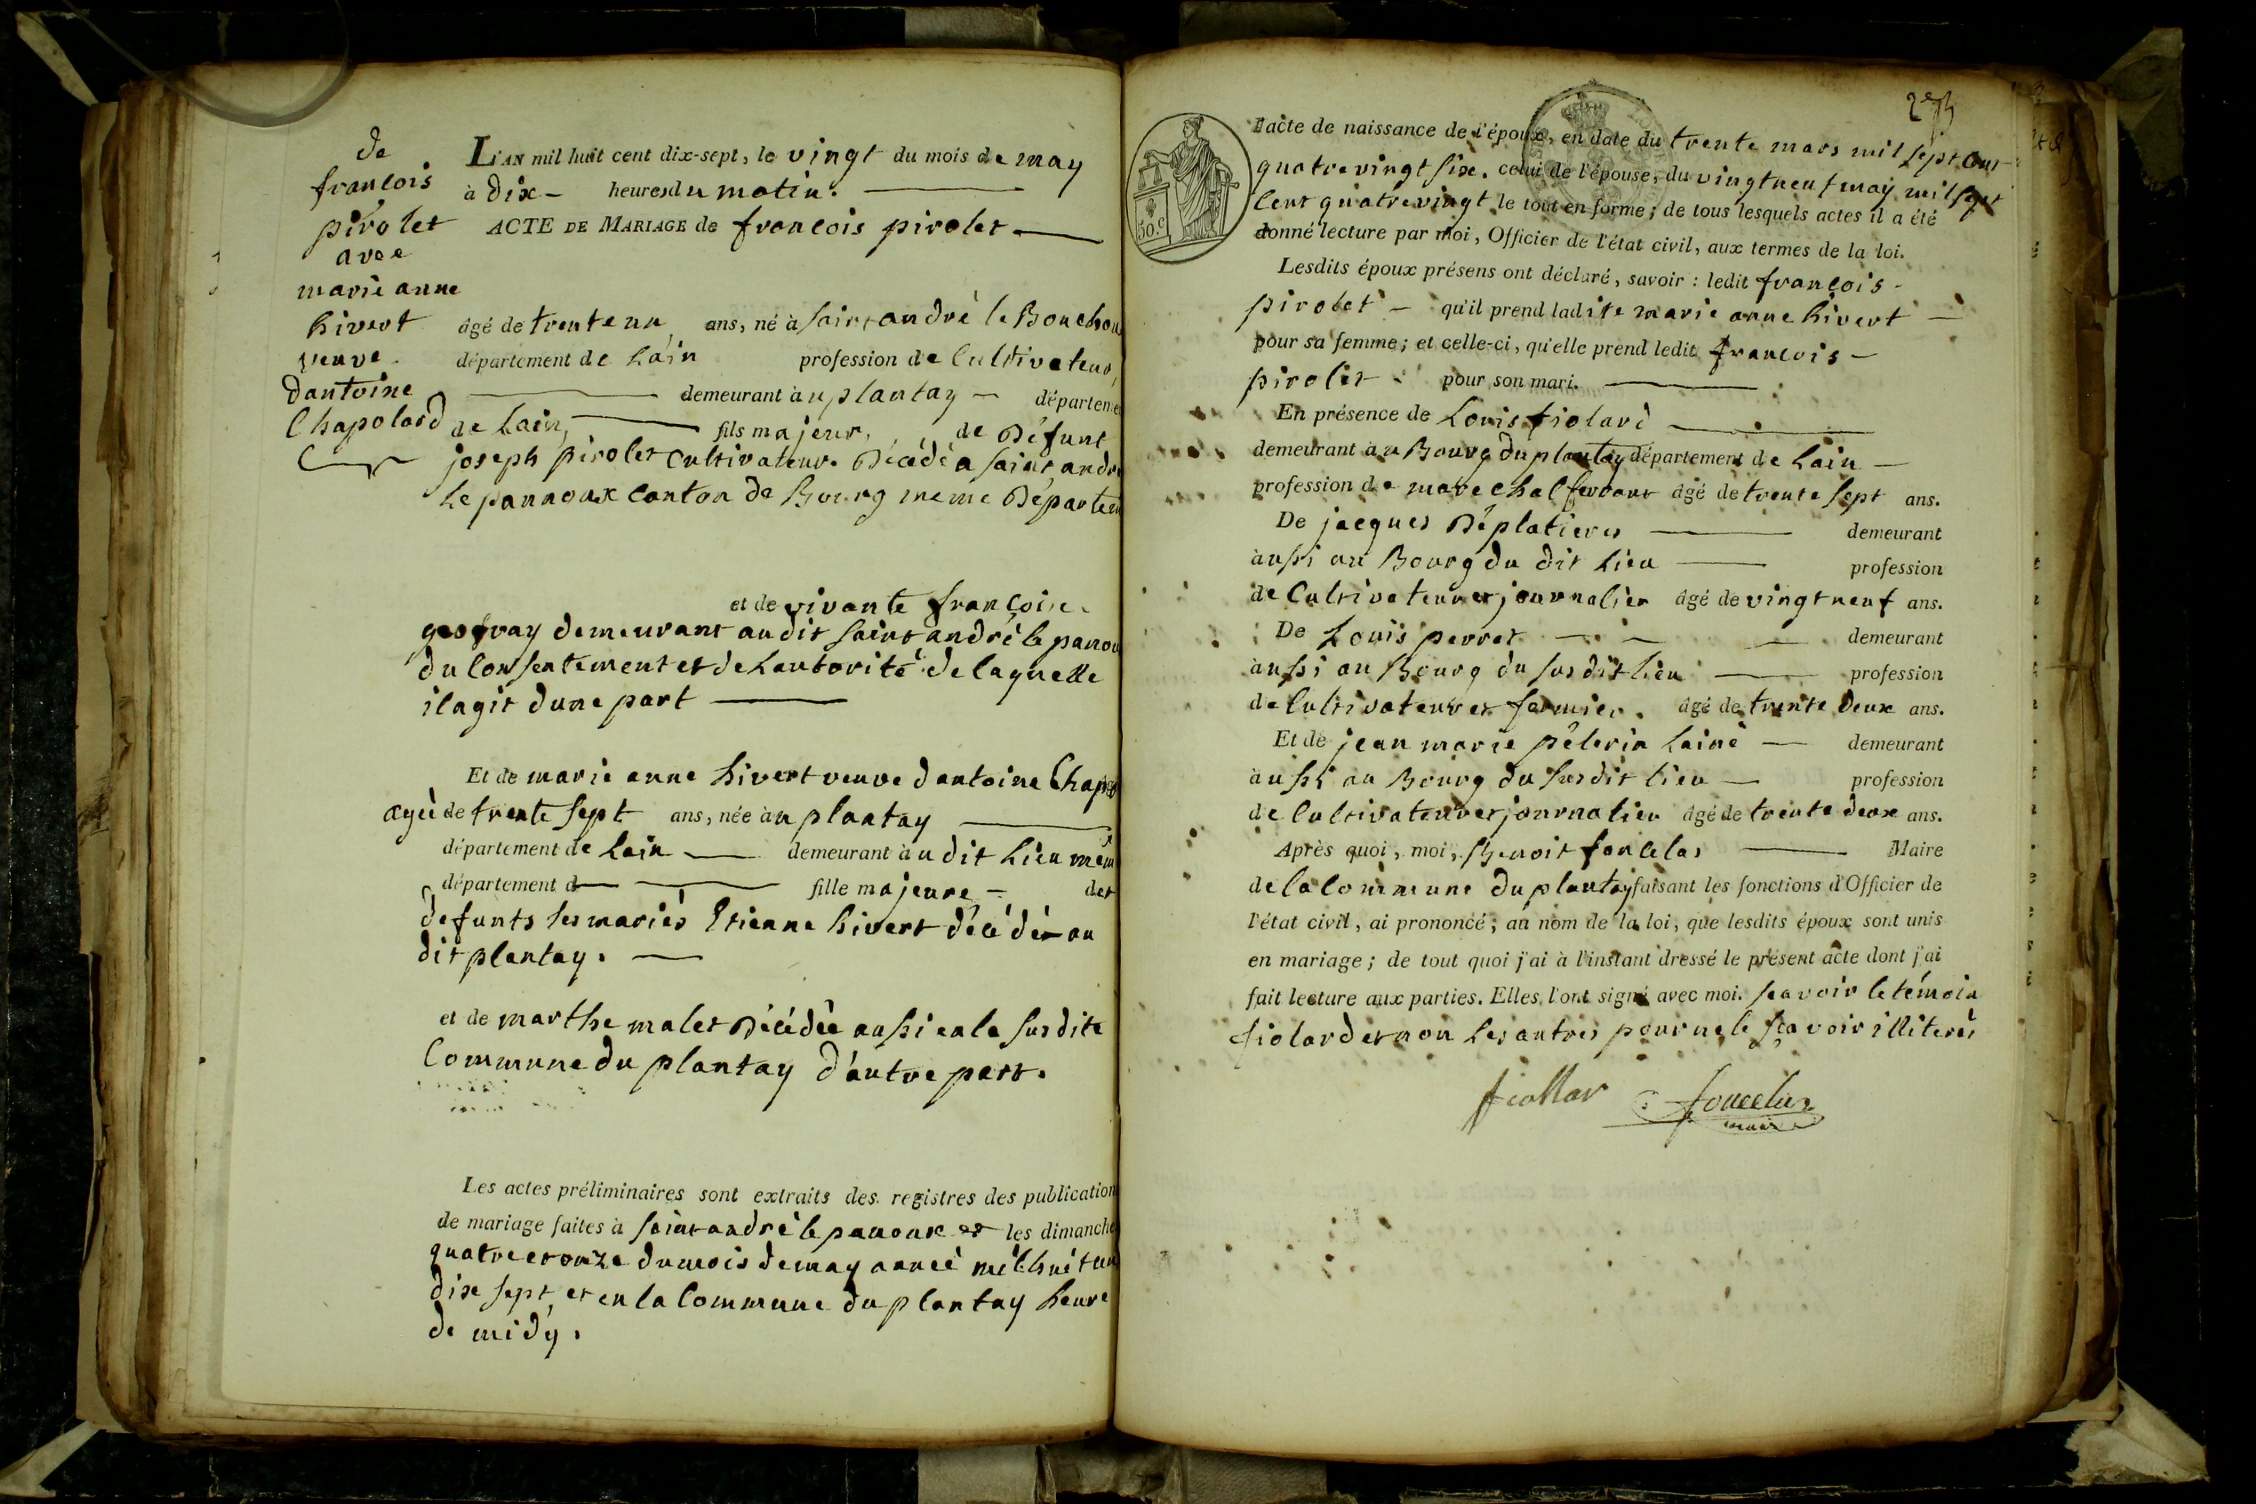 de
francois
pirolet
avec
marie anne
hivert
veuve
dantoine
Chapolard
L'AN mil huit cent dix-sept, le vingt du mois de may
à dix heures du matin.
ACTE DE MARIAGE de francois pirolet
âgé de trente un ans, né à saint andré le Bouchou
département de Lain profession de Cultivateur,
demeurant au plantay départeme
de Lain, fils majeur, de Défunt
joseph pirolet Cultivateur. Décédé a saint andre
Le pannoux canton de Bourg meme Départem
et de vivante francoise
geofray demeurant au dit saint andré le panou
du Consentement et de Lautorité de laquelle
il agit dune part
Et de marie anne hivert veuve dantoine Chapo
agée de trente sept ans, née au plantay
département de Lain demeurant au dit Lieu mem
département d fille majeure des
défunts les mariés Etienne hivert décédé au
dit plantay.
et de marthe malet Décédée aussi en la susdite
Commune du plantay d'autre part.
Les actes préliminaires sont extraits des registres des publication
de mariage faites à saint andré le panoux et les dimanche
quatre et onze du mois de may année mil huit cen
dix sept, et en la Commune du plantay heure
de midy.
l'acte de naissance de l'époux, en date du trente mars mil sept cent
quatre vingt six. celui de l'épouse, du vingt neuf may mil sept
Cent quatre vingt le tout en forme; de tous lesquels actes il a été
donné lecture par moi, Officier de l'état civil, aux termes de la loi.
Lesdits époux présens ont déclaré, savoir : ledit francois
pirolet qu'il prend ladite marie anne hivert
pour sa femme; et celle-ci, qu'elle prend ledit francois
pirolet pour son mari.
En présence de Louis fiolard
demeurant au Bourg du plantay département de Lain
profession de marechal ferrant âgé de trente sept ans.
De jacques Déplatieres demeurant
aussi au Bourg du dit Lieu profession
de Cultivateur et journalier âgé de vingt neuf ans.
De Louis perret demeurant
aussi au Bourg du susdit lieu profession
de Cultivateur et fermier. âgé de trente deux ans.
Et de jean marie pélerin Lainé demeurant
aussi au Bourg du susdit lieu profession
de Cultivateur et journalier âgé de trente deux ans.
Après quoi, moi, Benoit foncelas Maire
de la Commune du plantay faisant les fonctions d'Officier de
l'état civil, ai prononcé; au nom de la loi, que lesdits époux sont unis
en mariage; de tout quoi j'ai à l'instant dressé le présent acte dont j'ai
fait lecture aux parties. Elles l'ont signé avec moi. scavoir le témoin
fiolard et non les autres pour ne le scavoir illiterés
fiollar
maire
50.c